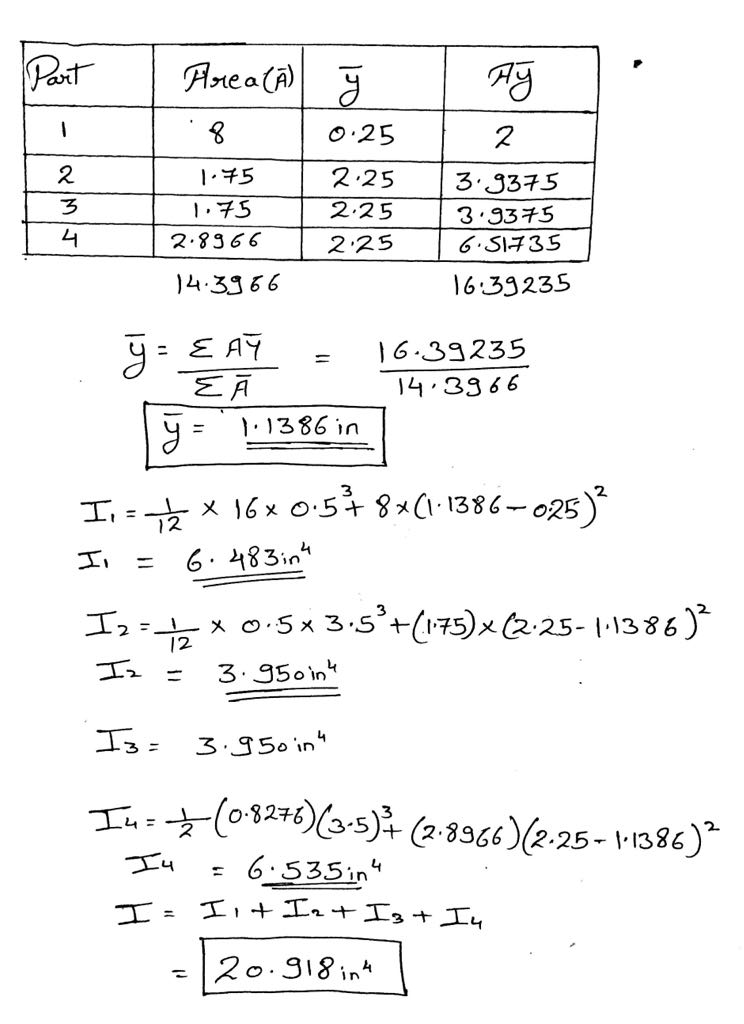 Part Area(Ā) ȳ Aȳ
1 8 0.25 2
2 1.75 2.25 3.9375
3 1.75 2.25 3.9375
4 2.8966 2.25 6.51735
14.3966 16.39235
ȳ = ΣAȲ / ΣĀ = 16.39235 / 14.3966
ȳ = 1.1386 in
I₁ = 1/12 × 16 × 0.5³ + 8 × (1.1386 − 025)²
I₁ = 6.483in⁴
I₂ = 1/12 × 0.5 × 3.5³ + (1.75) × (2.25 - 1.1386)²
I₂ = 3.950in⁴
I₃ = 3.950in⁴
I₄ = 1/2 (0.8276)(3.5)³ + (2.8966)(2.25 - 1.1386)²
I₄ = 6.535in⁴
I = I₁ + I₂ + I₃ + I₄
= 20.918in⁴